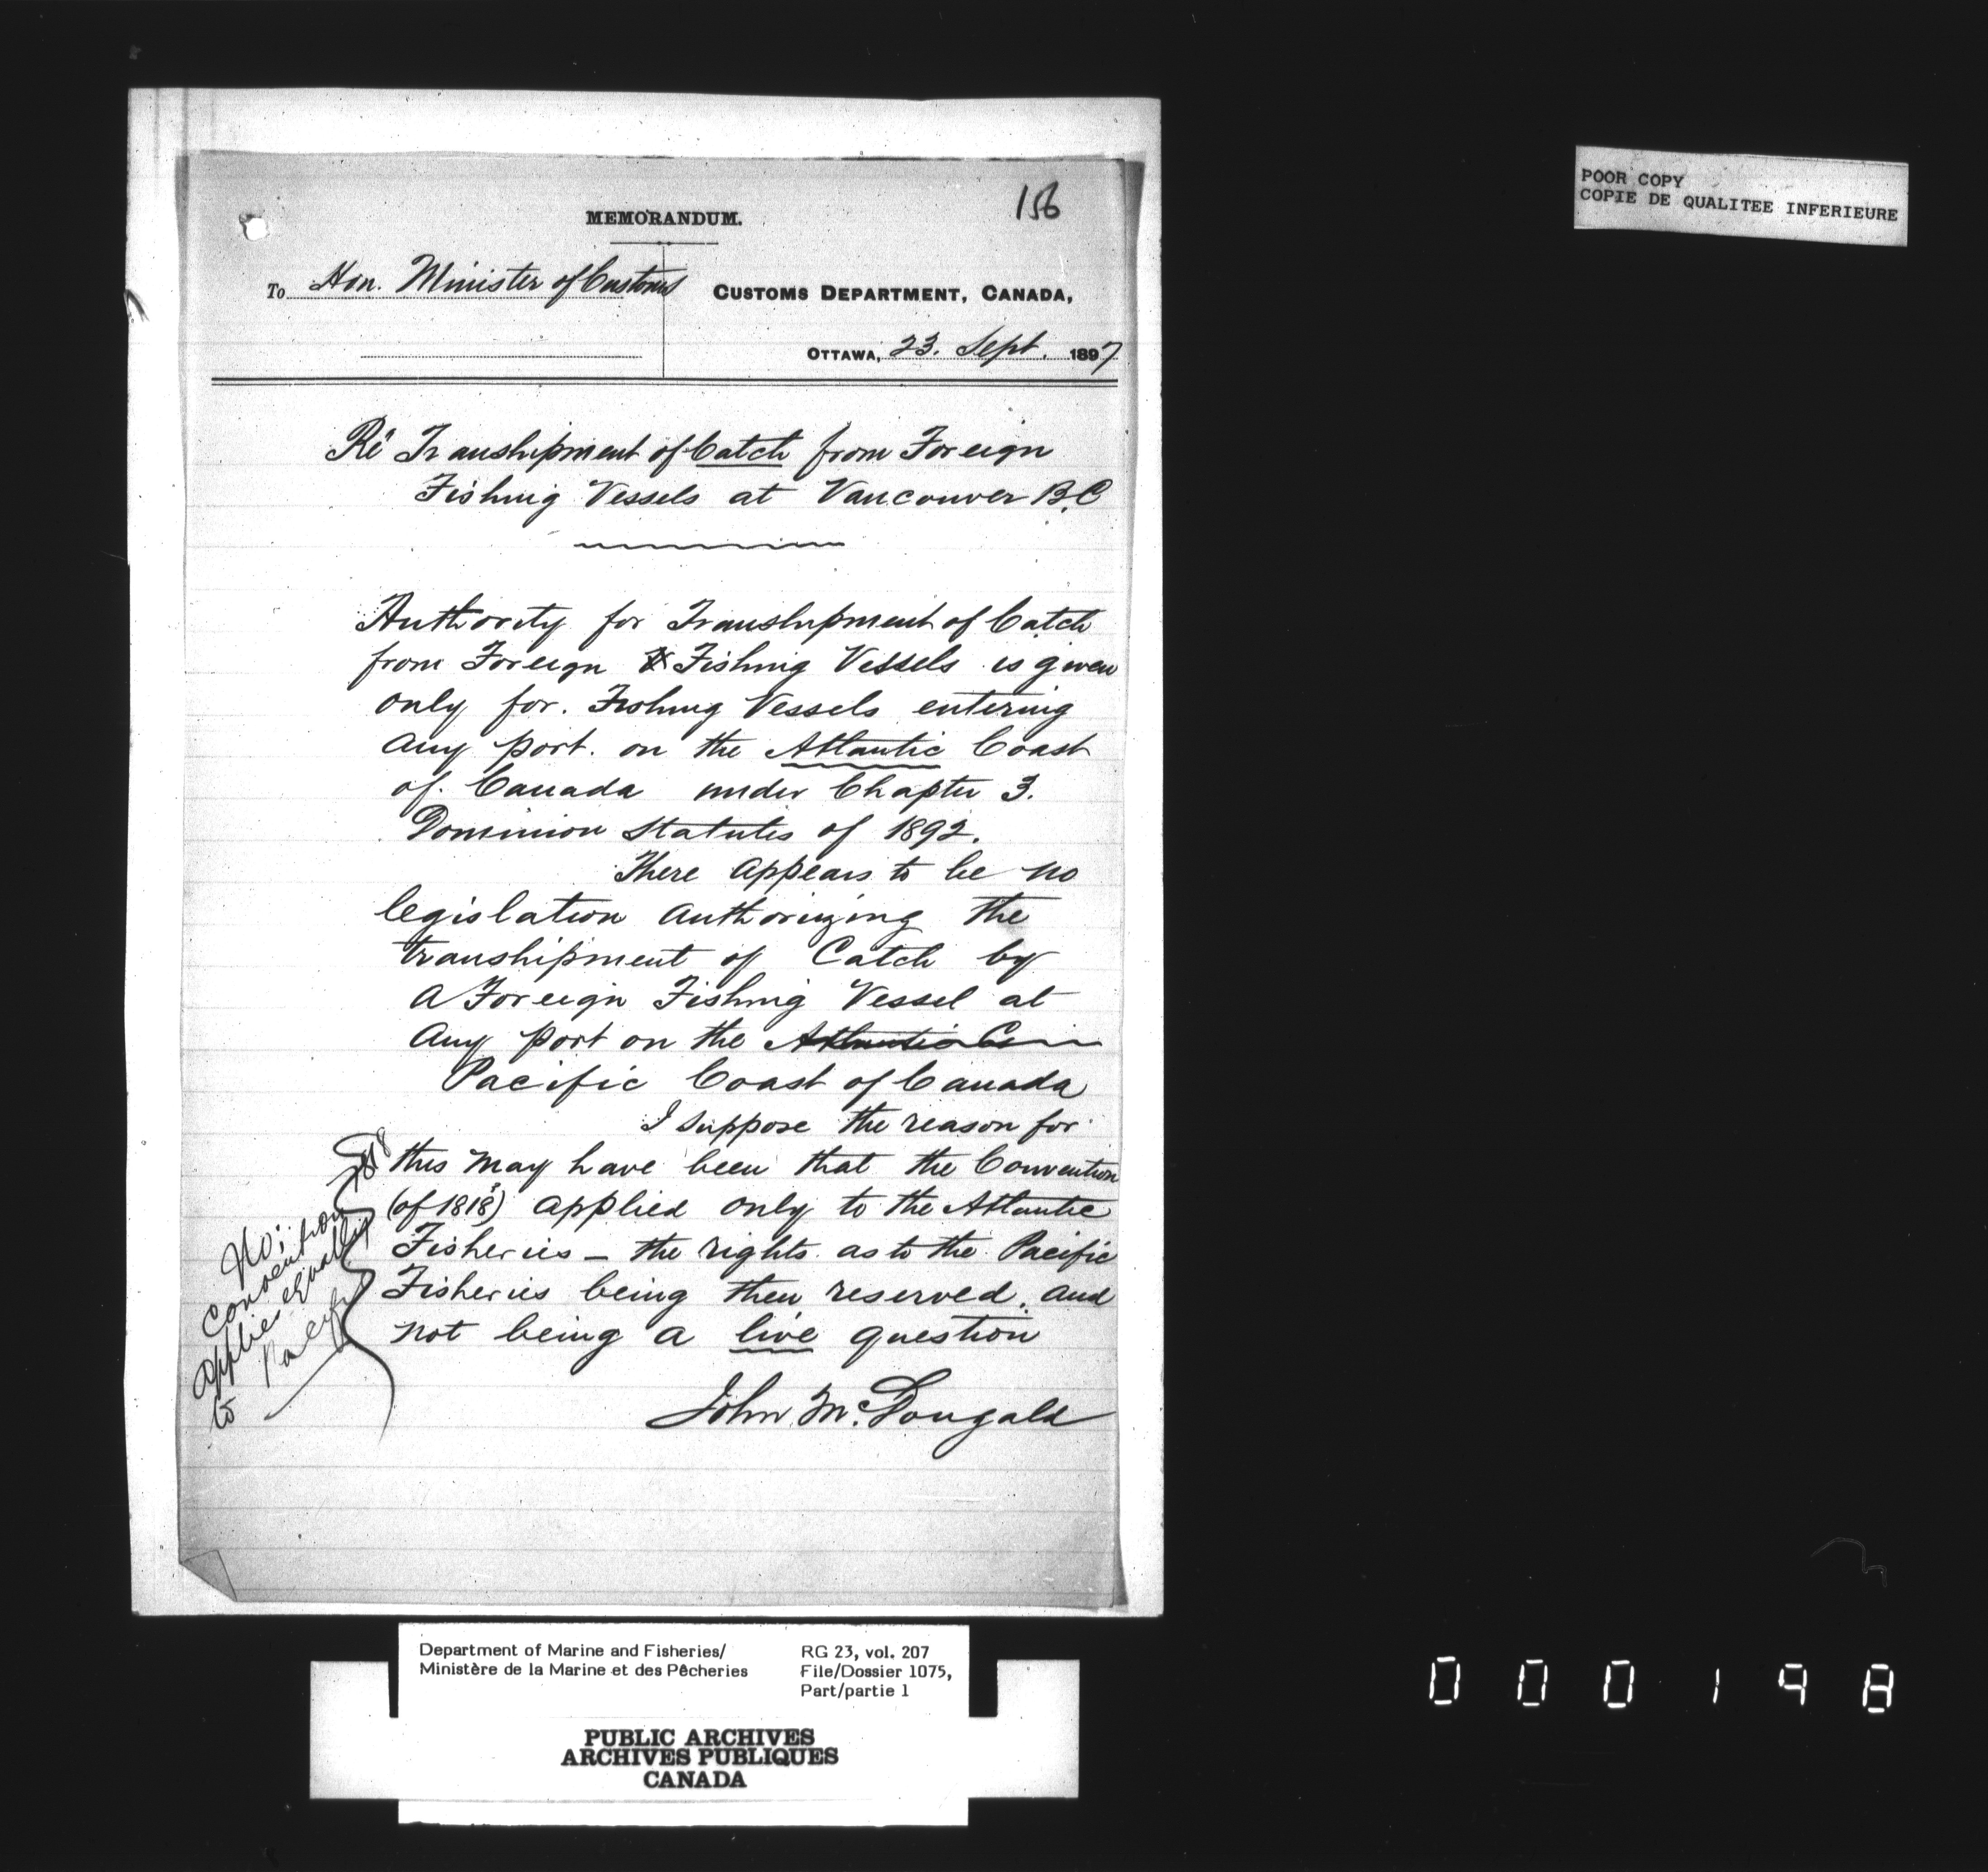 156
MEMORANDUM.
To Hon. Minister of Customs
CUSTOMS DEPARTMENT, CANADA,
OTTAWA, 23. Sept. 1897
Ré Transhipment of Catch from Foreign
Fishing Vessels at Vancouver B.C
Authority for Transhipment of Catch
from Foreign Fishing Vessels is given
only for. Fishing Vessels entering
any port. on the Atlantic Coast
of. Canada under Chapter 3.
Dominion Statutes of 1892.
There appears to be no
legislation authorizing the
transhipment of Catch by
a Foreign Fishing Vessel at
any port on the Atlantic
Pacific Coast of Canada
I suppose the reason for
this may have been that the Convention
(of 1818) applied only to the Atlantic
Fisheries – the rights as to the Pacific
Fisheries being then reserved. and
not being a live question
John McDougald
No!
Convention 1818
applies equally
to Pacific
POOR COPY
COPIE DE QUALITEE INFERIEURE
Department of Marine and Fisheries/
Ministère de la Marine et des Pêcheries
RG 23, vol. 207
File/Dossier 1075,
Part/partie 1
PUBLIC ARCHIVES
ARCHIVES PUBLIQUES
CANADA
000198